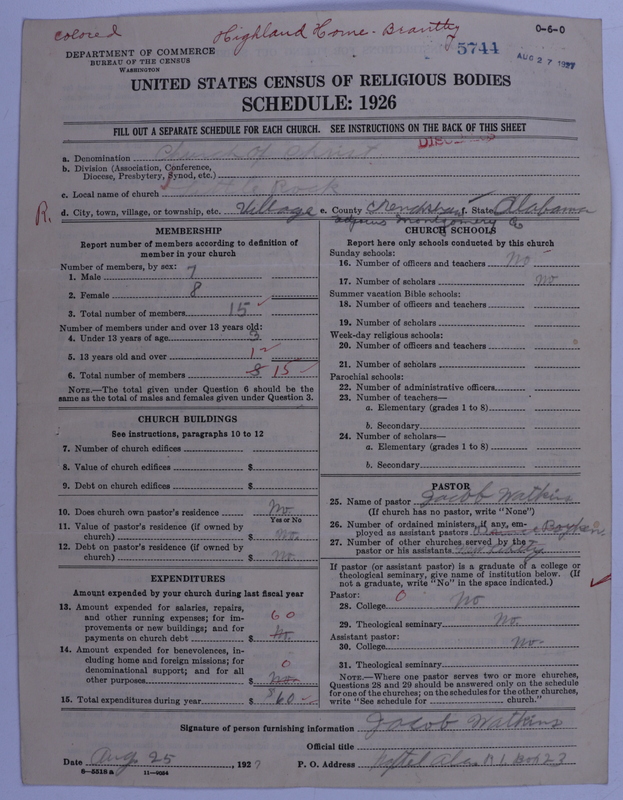 colored
Highland Home - Brantley
0-6-0
5744
AUG 27 1927
DEPARTMENT OF COMMERCE
BUREAU OF THE CENSUS
WASHINGTON
UNITED STATES CENSUS OF RELIGIOUS BODIES
SCHEDULE: 1926
FILL OUT A SEPARATE SCHEDULE FOR EACH CHURCH. SEE INSTRUCTIONS ON THE BACK OF THIS SHEET
a. Denomination Church of Christ
b. Division (Association, Conference, Diocese, Presbytery, Synod, etc.)
c. Local name of church Little Rock
R. d. City, town, village, or township, etc. Village e. County Crenshaw f. State Alabama
adjoins Montgomery Co
MEMBERSHIP
Report number of members according to definition of member in your church
Number of members, by sex:
1. Male 7
2. Female 8
3. Total number of members 15
Number of members under and over 13 years old:
4. Under 13 years of age
5. 13 years old and over
6. Total number of members 8 15
NOTE.—The total given under Question 6 should be the same as the total of males and females given under Question 3.
CHURCH BUILDINGS
See instructions, paragraphs 10 to 12
7. Number of church edifices
8. Value of church edifices $
9. Debt on church edifices $
10. Does church own pastor's residence No
Yes or No
11. Value of pastor's residence (if owned by church) $ No
12. Debt on pastor's residence (if owned by church) $ No
EXPENDITURES
Amount expended by your church during last fiscal year
13. Amount expended for salaries, repairs, and other running expenses; for improvements or new buildings; and for payments on church debt $ 60 No
14. Amount expended for benevolences, including home and foreign missions; for denominational support; and for all other purposes $ 0 No
15. Total expenditures during year $ $60
CHURCH SCHOOLS
Report here only schools conducted by this church
Sunday schools:
16. Number of officers and teachers No
17. Number of scholars No
Summer vacation Bible schools:
18. Number of officers and teachers
19. Number of scholars
Week-day religious schools:
20. Number of officers and teachers
21. Number of scholars
Parochial schools:
22. Number of administrative officers
23. Number of teachers—
a. Elementary (grades 1 to 8)
b. Secondary
24. Number of scholars—
a. Elementary (grades 1 to 8)
b. Secondary
PASTOR
25. Name of pastor Jacob Watkins
(If church has no pastor, write "None")
26. Number of ordained ministers, if any, employed as assistant pastors
27. Number of other churches served by the pastor or his assistants
If pastor (or assistant pastor) is a graduate of a college or theological seminary, give name of institution below. (If not a graduate, write "No" in the space indicated.)
Pastor: 0
28. College No
29. Theological seminary No.
Assistant pastor:
30. College No.
31. Theological seminary
NOTE.—Where one pastor serves two or more churches, Questions 28 and 29 should be answered only on the schedule for one of the churches; on the schedules for the other churches, write "See schedule for church."
Signature of person furnishing information Jacob Watkins
Official title
Date Aug 25, 1927 P. O. Address Naftel Ala R 1 Box 23
8—5318 a 11—9024